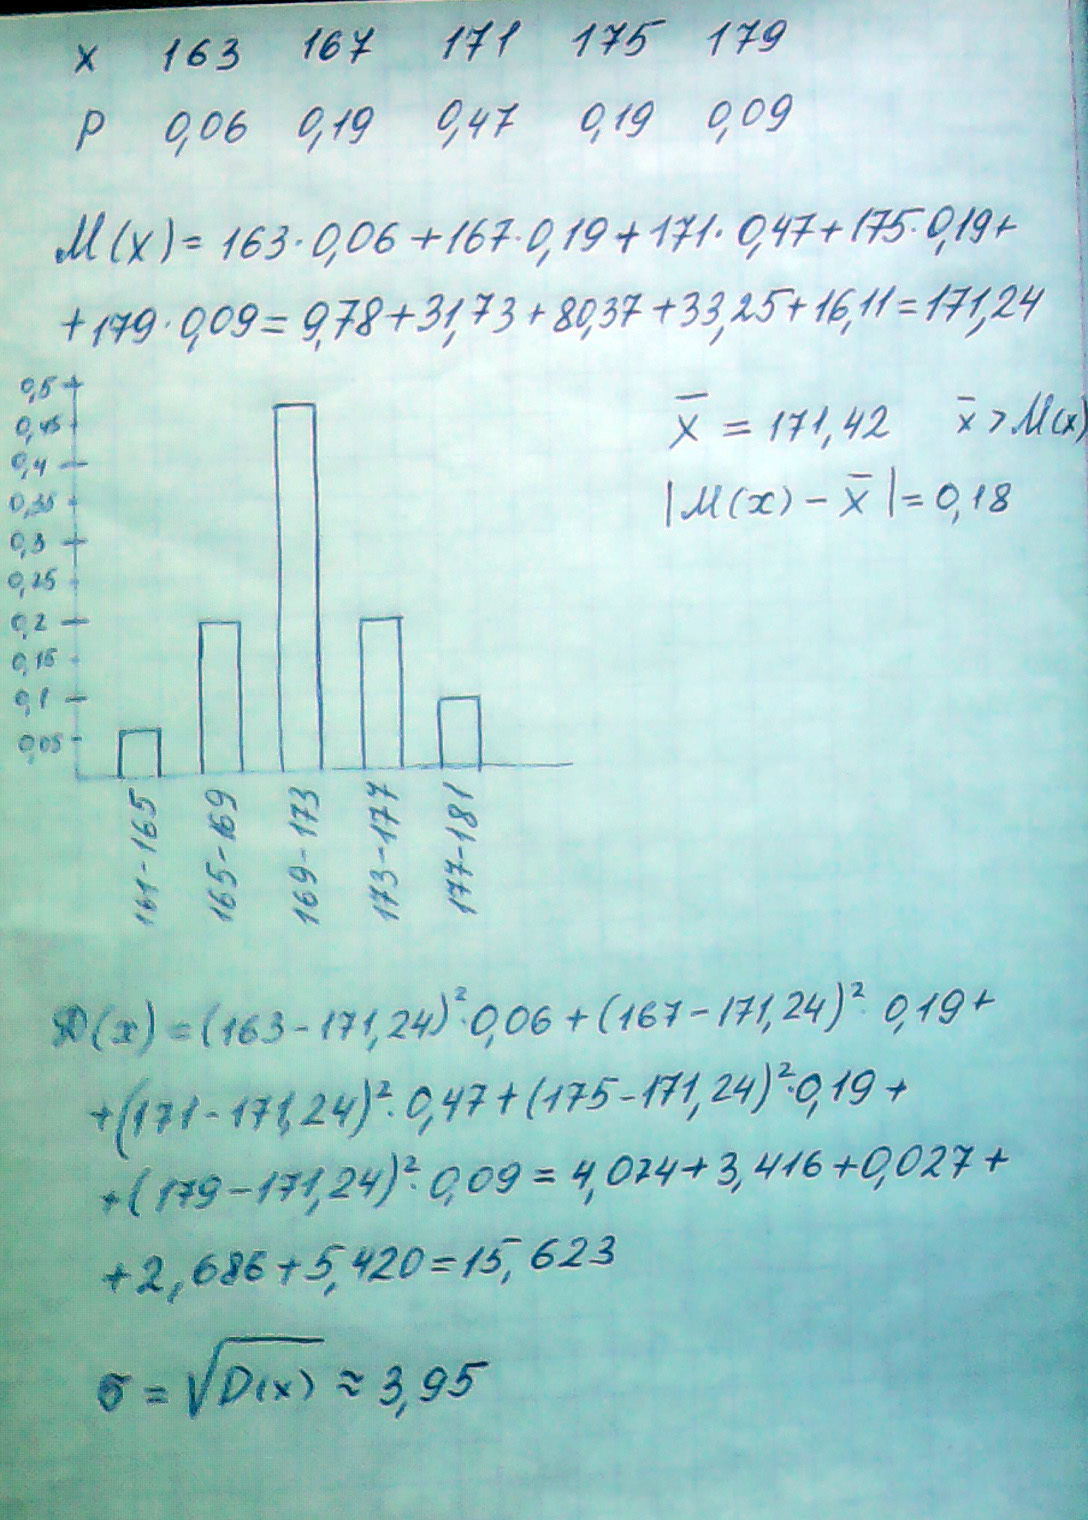 x 163 167 171 175 179
P 0,06 0,19 0,47 0,19 0,09
M(x) = 163·0,06+167·0,19+171·0,47+175·0,19+
+179·0,09=9,78+31,73+80,37+33,25+16,11=171,24
0,5
0,45
0,4
0,35
0,3
0,25
0,2
0,15
0,1
0,05
161-165
165-169
169-173
173-177
177-181
x̄ = 171,42 x̄ > M(x)
|M(x) - x̄| = 0,18
D(x) = (163-171,24)²·0,06+(167-171,24)²·0,19+
+(171-171,24)²·0,47+(175-171,24)²·0,19+
+(179-171,24)²·0,09=4,074+3,416+0,027+
+2,686+5,420=15,623
σ = √D(x) ≈ 3,95